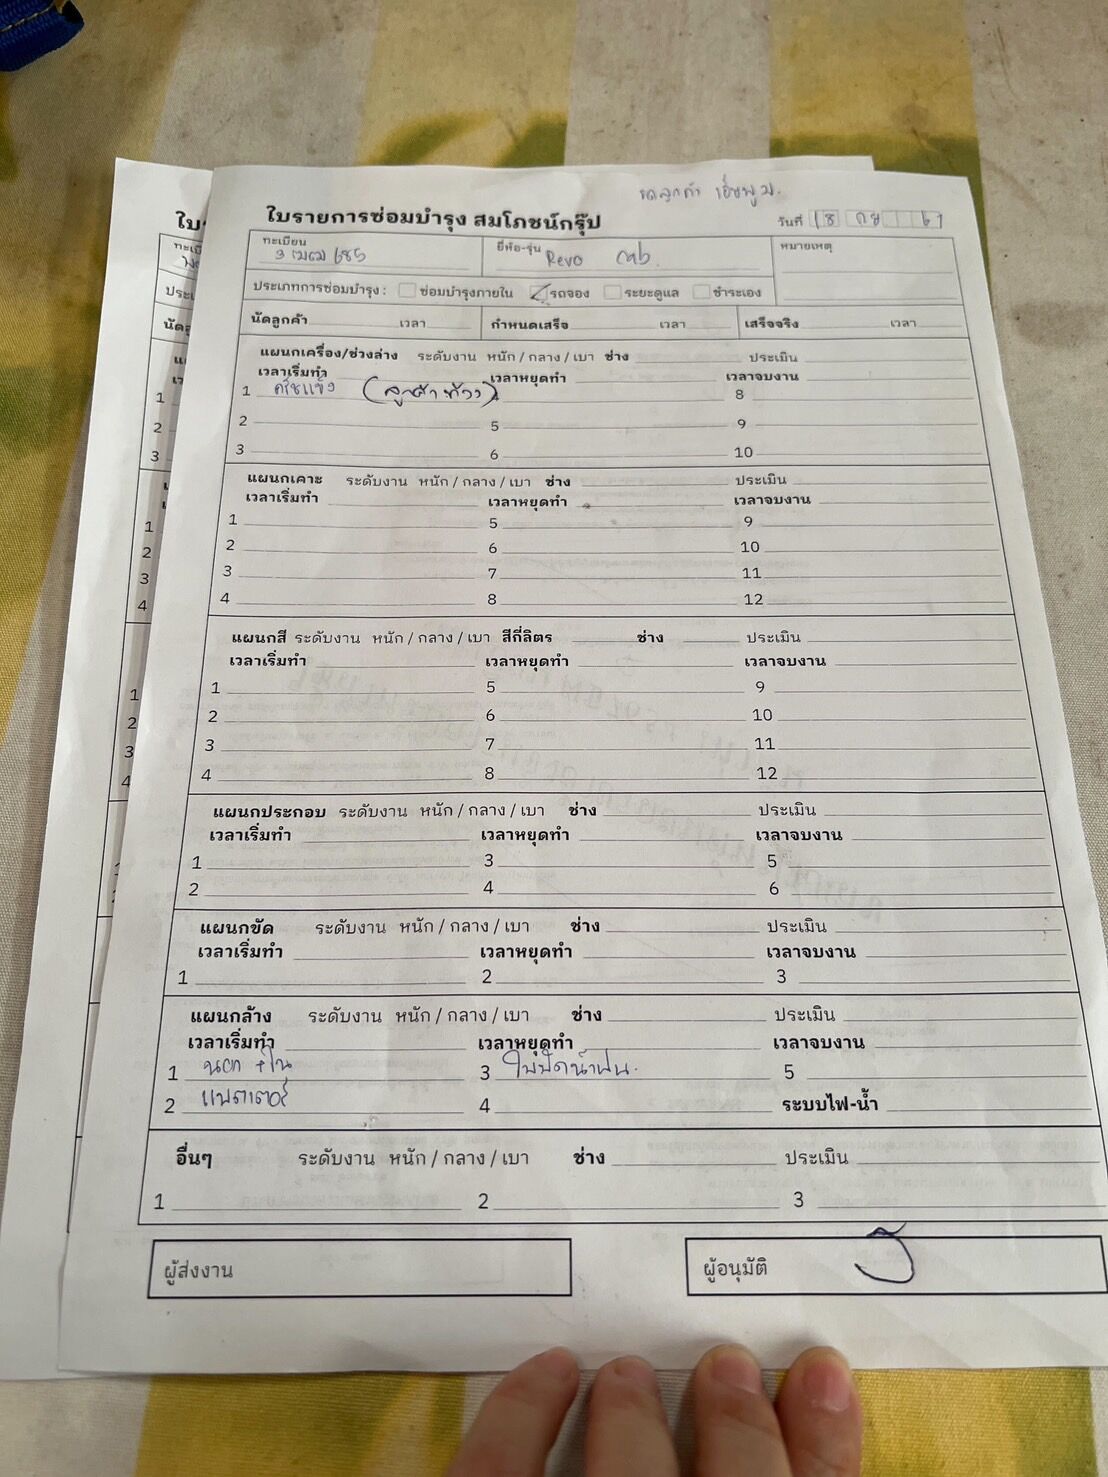 รถลูกค้า
ใบรายการซ่อมบำรุง สมโภชน์กรุ๊ป
วันที่ 18 กย 67
ทะเบียน ยี่ห้อ-รุ่น Revo cab. หมายเหตุ
3 ฒฒ 685
ประเภทการซ่อมบำรุง : ซ่อมบำรุงภายใน รถจอง ระยะดูแล ชำระเอง
นัดลูกค้า เวลา กำหนดเสร็จ เวลา เสร็จจริง เวลา
แผนกเครื่อง/ช่วงล่าง ระดับงาน หนัก / กลาง / เบา ช่าง ประเมิน
เวลาเริ่มทำ เวลาหยุดทำ เวลาจบงาน
1 ครัชแข็ง (ลูกค้าท้วง) 4 8
2 5 9
3 6 10
แผนกเคาะ ระดับงาน หนัก / กลาง / เบา ช่าง ประเมิน
เวลาเริ่มทำ เวลาหยุดทำ เวลาจบงาน
1 5 9
2 6 10
3 7 11
4 8 12
แผนกสี ระดับงาน หนัก / กลาง / เบา สีกี่ลิตร ช่าง ประเมิน
เวลาเริ่มทำ เวลาหยุดทำ เวลาจบงาน
1 5 9
2 6 10
3 7 11
4 8 12
แผนกประกอบ ระดับงาน หนัก / กลาง / เบา ช่าง ประเมิน
เวลาเริ่มทำ เวลาหยุดทำ เวลาจบงาน
1 3 5
2 4 6
แผนกขัด ระดับงาน หนัก / กลาง / เบา ช่าง ประเมิน
เวลาเริ่มทำ เวลาหยุดทำ เวลาจบงาน
1 2 3
แผนกล้าง ระดับงาน หนัก / กลาง / เบา ช่าง ประเมิน
เวลาเริ่มทำ เวลาหยุดทำ เวลาจบงาน
1 นอก + ใน 3 ใบปัดน้ำฝน. 5
2 แบตเตอรี่ 4 ระบบไฟ-น้ำ
อื่นๆ ระดับงาน หนัก / กลาง / เบา ช่าง ประเมิน
1 2 3
ผู้ส่งงาน ผู้อนุมัติ